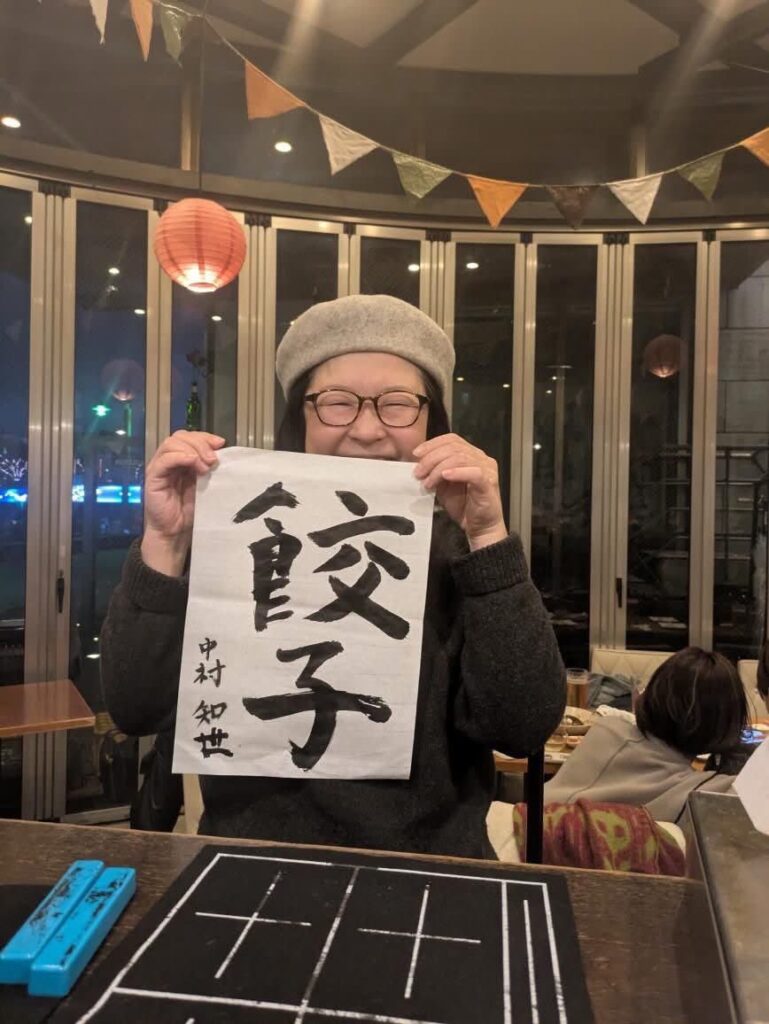 餃子
中村知世